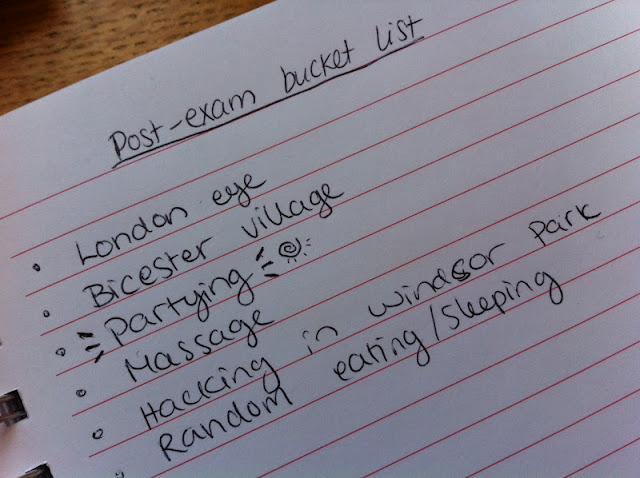 Post-exam bucket list
London eye
Bicester village
Partying
Massage
Hacking in Windsor Park
Random eating/sleeping